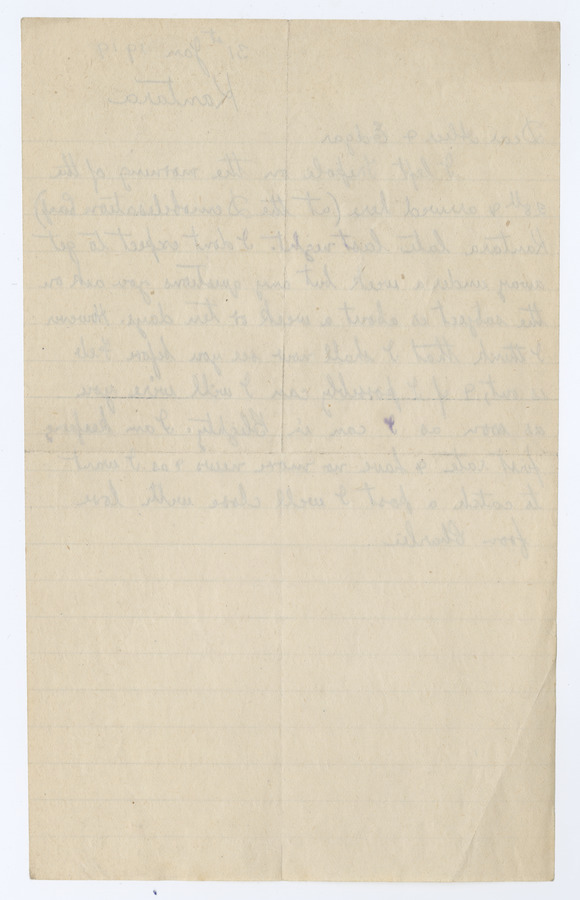 31st Jan 1919
Kantara
Dear & Edgar
I left on the morning of the
& arrived here (at the Demobilisation Camp)
Kantara late last night. I don't expect to get
away under a week but any questions you ask on
the subject is about a week or ten days. However
I think that I shall now see you before Feb
is out, & if I possibly can I will wire you
as soon as I can in Blighty. I am keeping
first rate & have no more news & as I want
to catch a post I will close with love
from Charlie